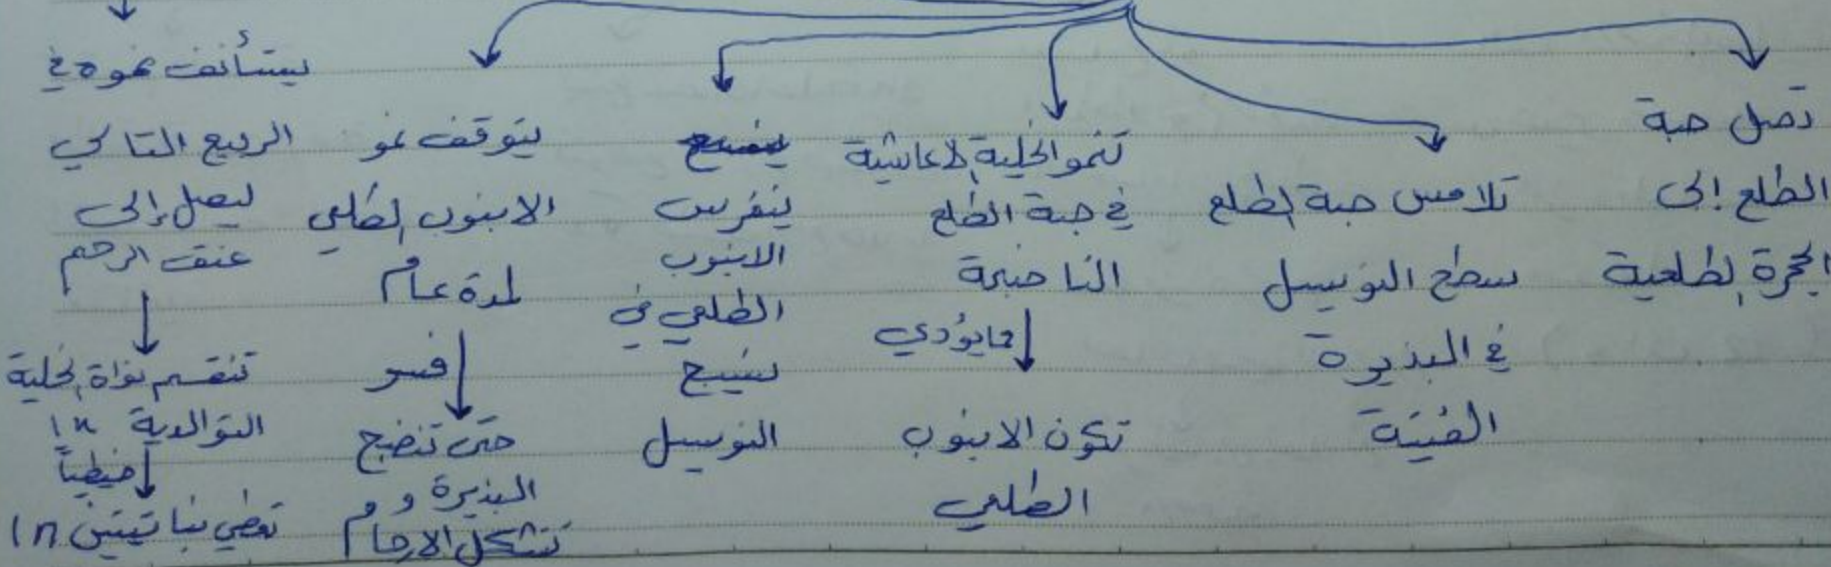 تصل حبة
الطلع إلى
الحجرة الطلعية
تلامس حبة الطلع
سطح النوسيل
في البذيرة
الفتية
تنمو الخلية الاعاشية
في حبة الطلع
الناضجة
مايؤدي
تكون الانبوب
الطلعي
ينغرس
الانبوب
الطلعي في
نسيج
النوسيل
يتوقف نمو
الانبوب الطلعي
لمدة عام
فسر
حتى تنضج
البذيرة و
تتشكل الارحام
يستأنف نموه في
الربيع التالي
ليصل إلى
عنق الرحم
تنقسم نواة الخلية
التوالدية 1n
خيطياً
تعطي نباتيتين 1n